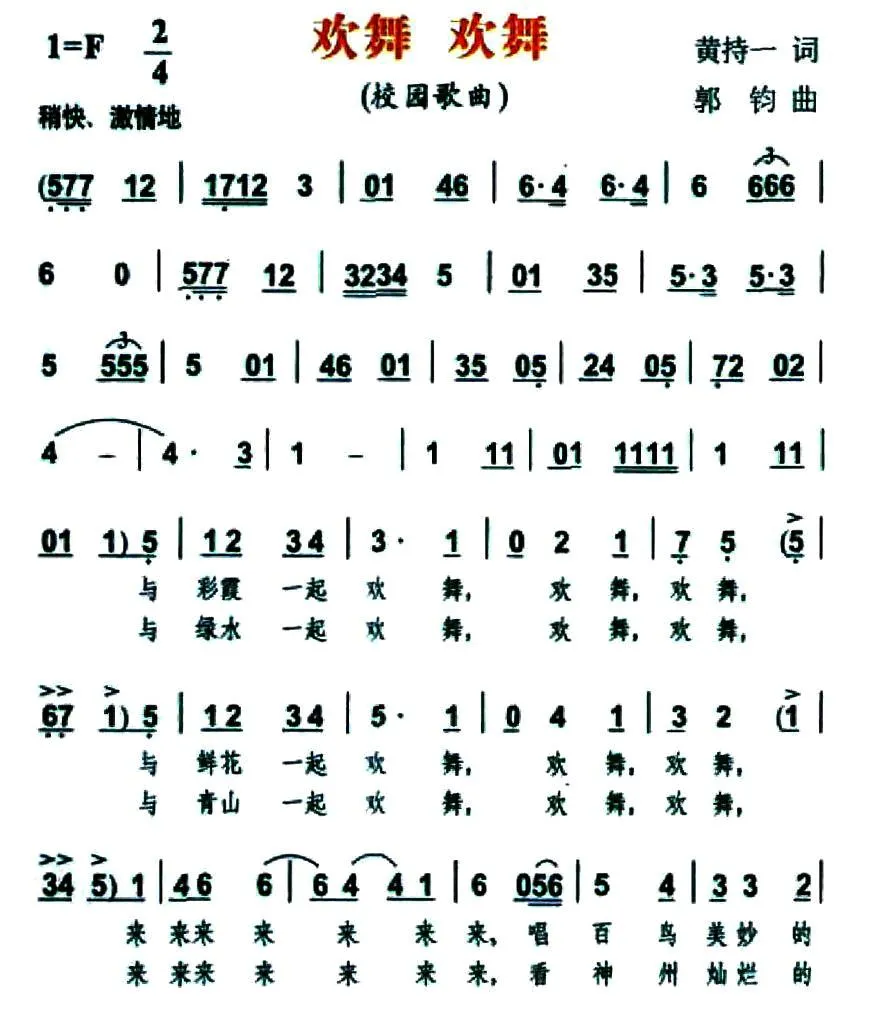 欢舞 欢舞
1=F 2/4
(校园歌曲)
黄持一 词
郭 钧 曲
稍快、激情地
(577 12 | 1712 3 | 01 46 | 6·4 6·4 | 6 666 |
6 0 | 577 12 | 3234 5 | 01 35 | 5·3 5·3 |
5 555 | 5 01 | 46 01 | 35 05 | 24 05 | 72 02 |
4 – | 4· 3 | 1 – | 1 11 | 01 1111 | 1 11 |
01 1) 5 | 12 34 | 3· 1 | 0 2 1 | 7 5 (5 |
与 彩霞 一起 欢 舞, 欢 舞, 欢 舞,
与 绿水 一起 欢 舞, 欢 舞, 欢 舞,
67 1) 5 | 12 34 | 5· 1 | 0 4 1 | 3 2 (1 |
与 鲜花 一起 欢 舞, 欢 舞, 欢 舞,
与 青山 一起 欢 舞, 欢 舞, 欢 舞,
34 5) 1 | 46 6 | 64 41 | 6 056 | 5 4 | 33 2 |
来 来来 来 来 来 来, 唱 百 鸟 美妙 的
来 来来 来 来 来 来, 看 神 州 灿烂 的